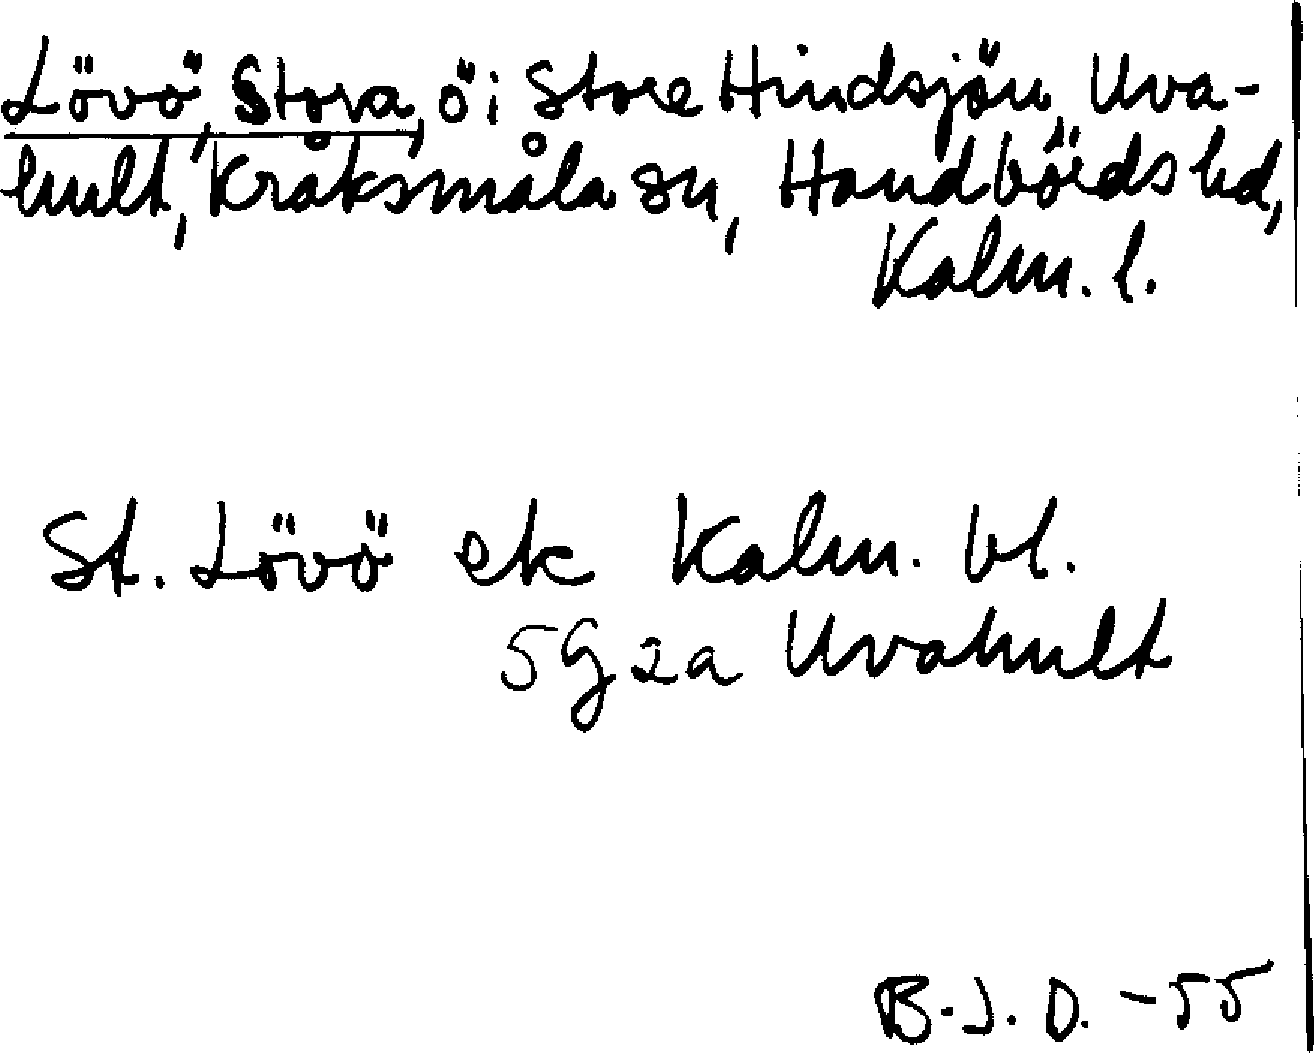 Lövö, Stora, ö i Store Hindsjön, Uva-
hult, Kråksmåla sn, Handbörds hd,
Kalm. l.
St. Lövö ek Kalm. bl.
5G2a Uvahult
B.J.O. -55